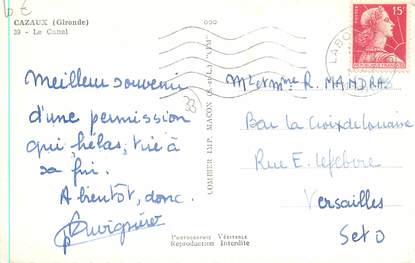 6 €
CAZAUX (Gironde)
39 - Le Canal
15F
Meilleur souvenir
d'une permission
qui, hélas, tire à
sa fin.
A bientôt, donc.
COMBIER IMP. MACON (S.-et-L.) "CIM"
33
PHOTOGRAPHIE VÉRITABLE
Reproduction Interdite
Mr et Mme R. MANDRAS
Bar La Croix de Lorraine
Rue E. Lefebvre
Versailles
S et O